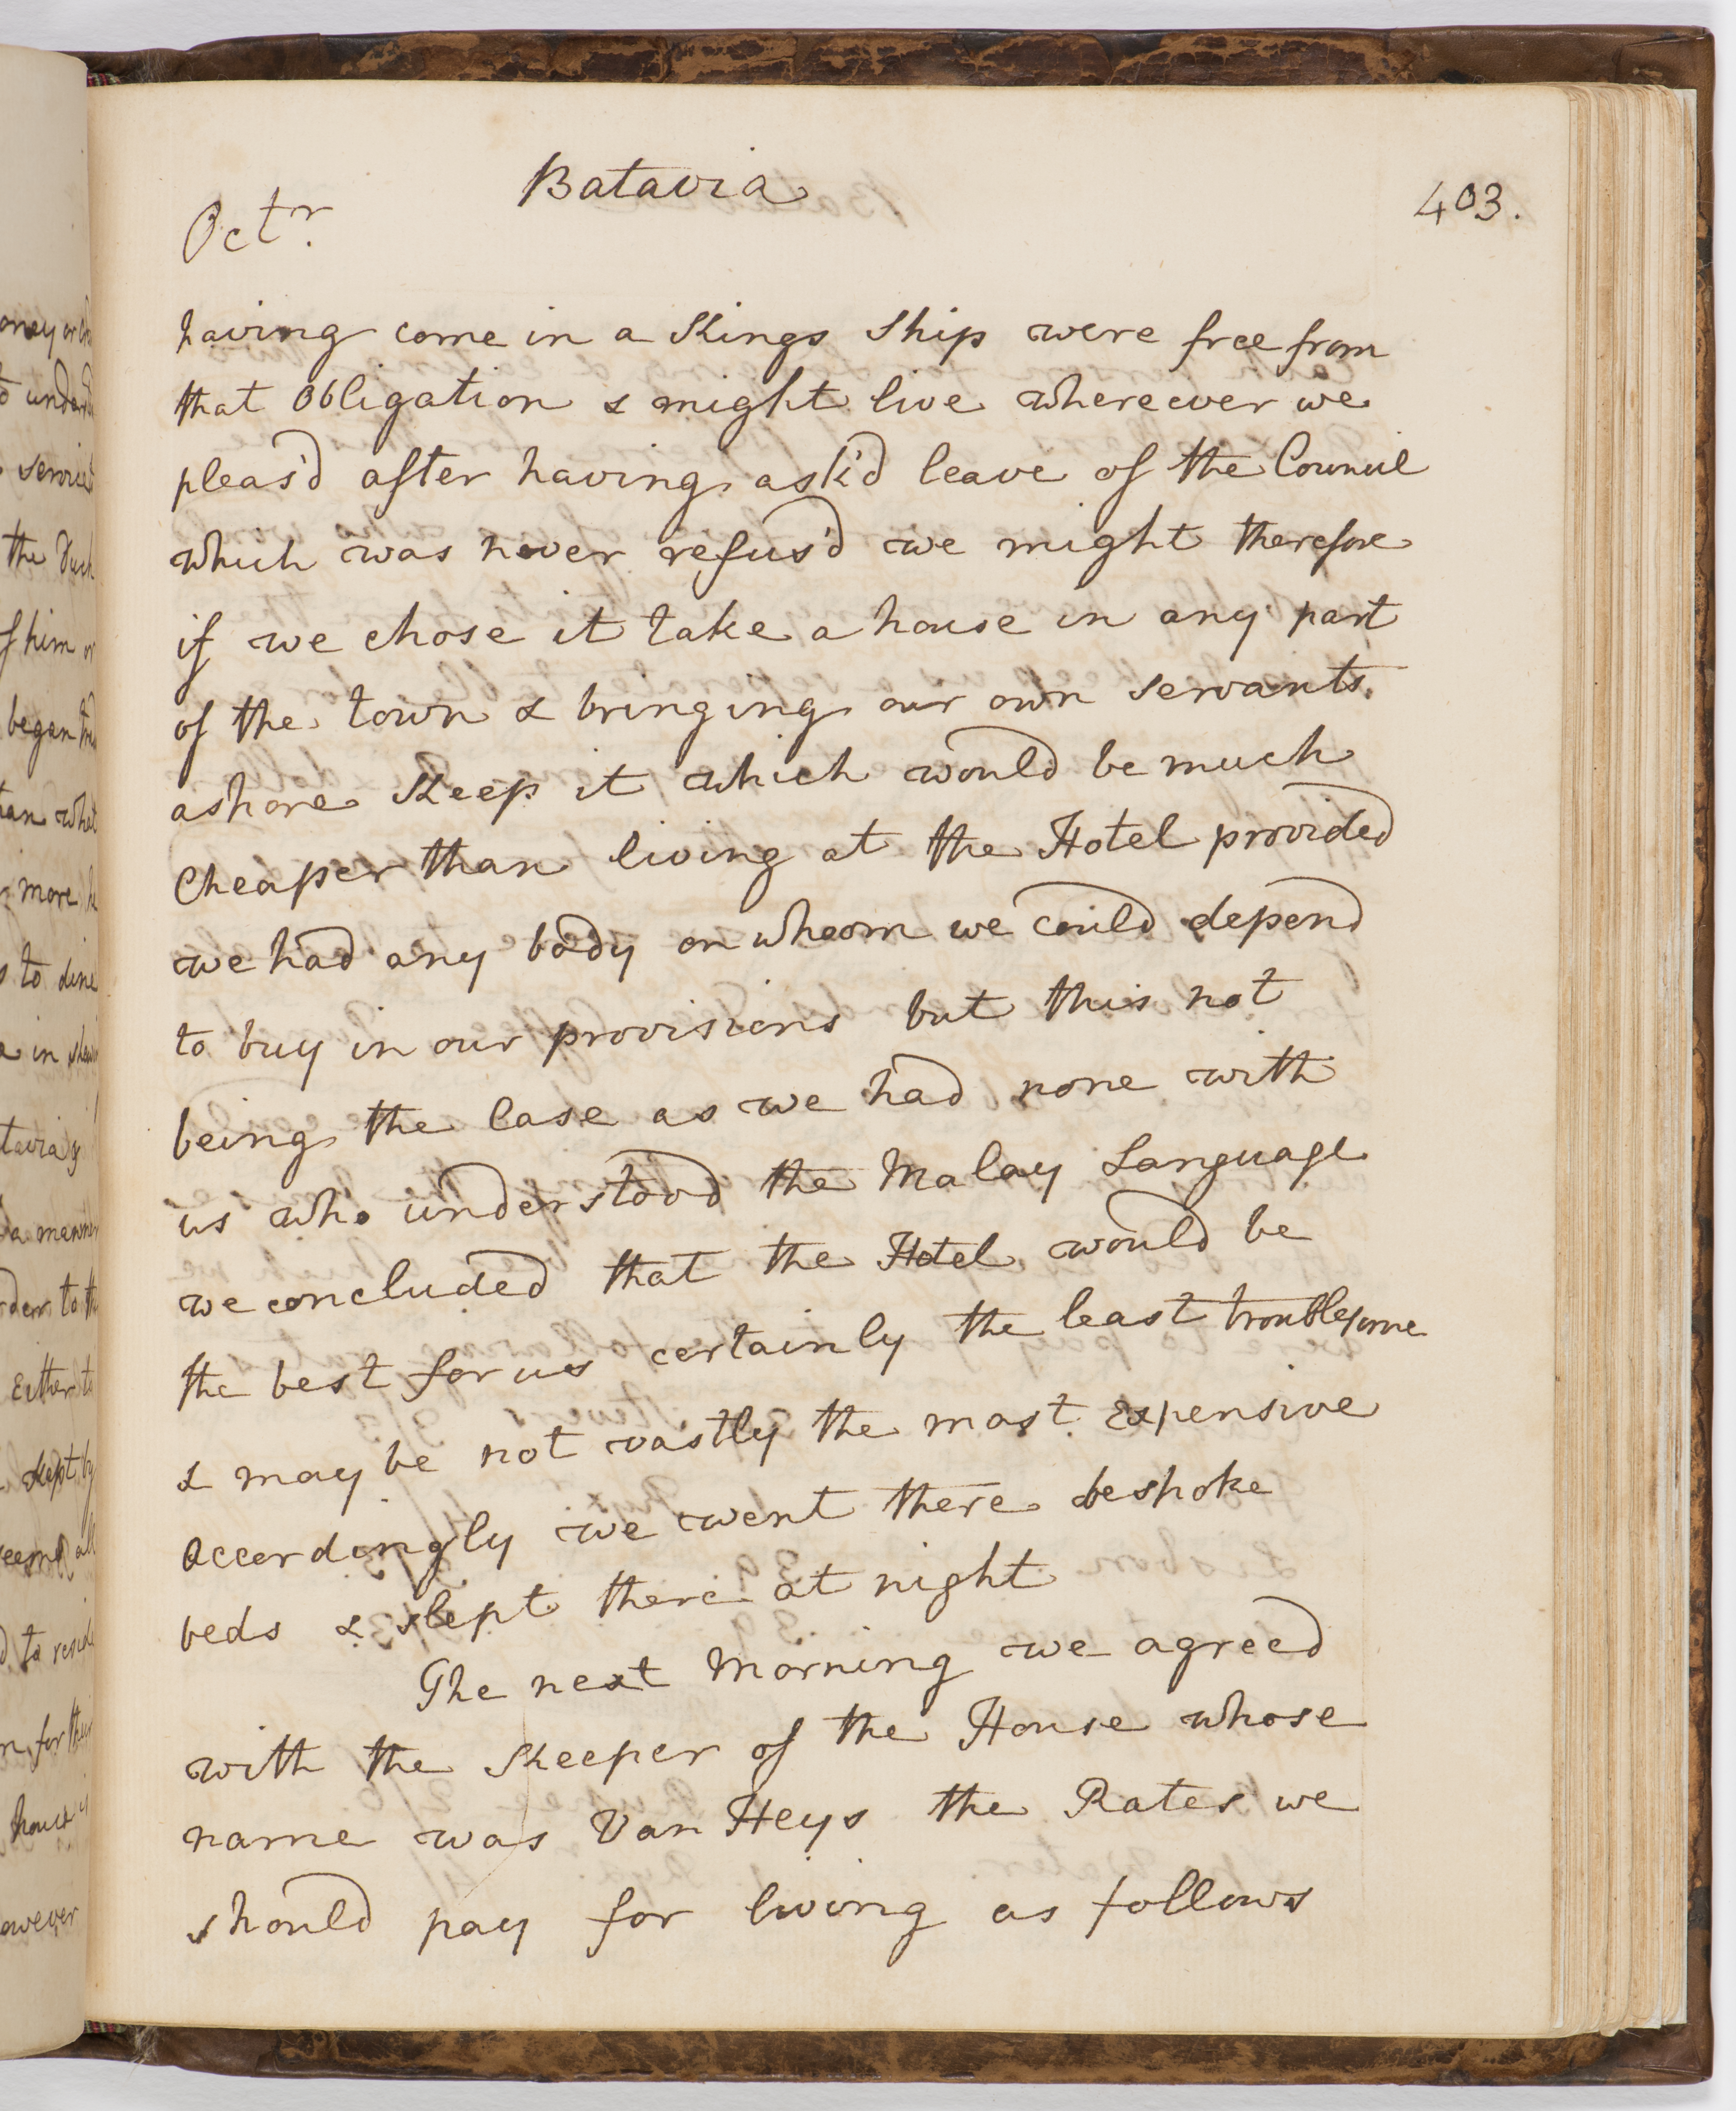 Batavia
Octr.
403.
having come in a Kings Ship were free from
that Obligation & might live whereever we
pleas'd after having ask'd leave of the Council
which was never refus'd we might therefore
if we chose it take a house in any part
of the town & bringing our own servants
ashore Keep it which would be much
Cheaper than living at the Hotel provided
we had any body on wheom we could depend
to buy in our provisions but this not
being the Case as we had none with
us who understood the Malay Language
we concluded that the Hotel would be
the best for us certainly the least troublesome
& may be not vastly the most Expensive
Accordingly we went there bespoke
beds & slept there at night
The next Morning we agreed
with the Keeper of the House whose
name was Van Heys the Rates we
should pay for living as follows